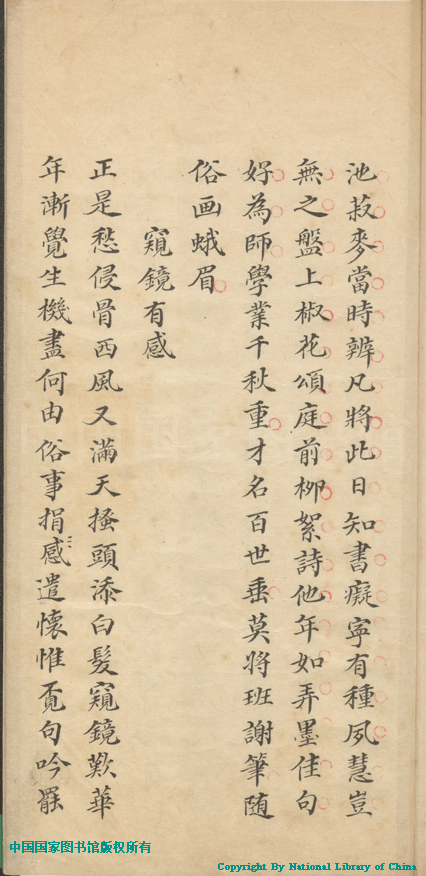 池菽麥當時辨凡將此日知書癡寧有種夙慧豈
無之盤上椒花頌庭前栁絮詩他年如弄墨佳句
好為師學業千秋重才名百世垂莫將班謝筆随
俗画蛾眉
窺鏡有感
正是愁侵骨西風又滿天搔頭添白髮窺鏡歎華
年漸覺生機盡何由俗事捐感遣懷惟覓句吟罷
中国国家图书馆版权所有
Copyright By National Library of China